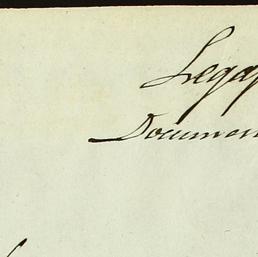 Legg
Documen